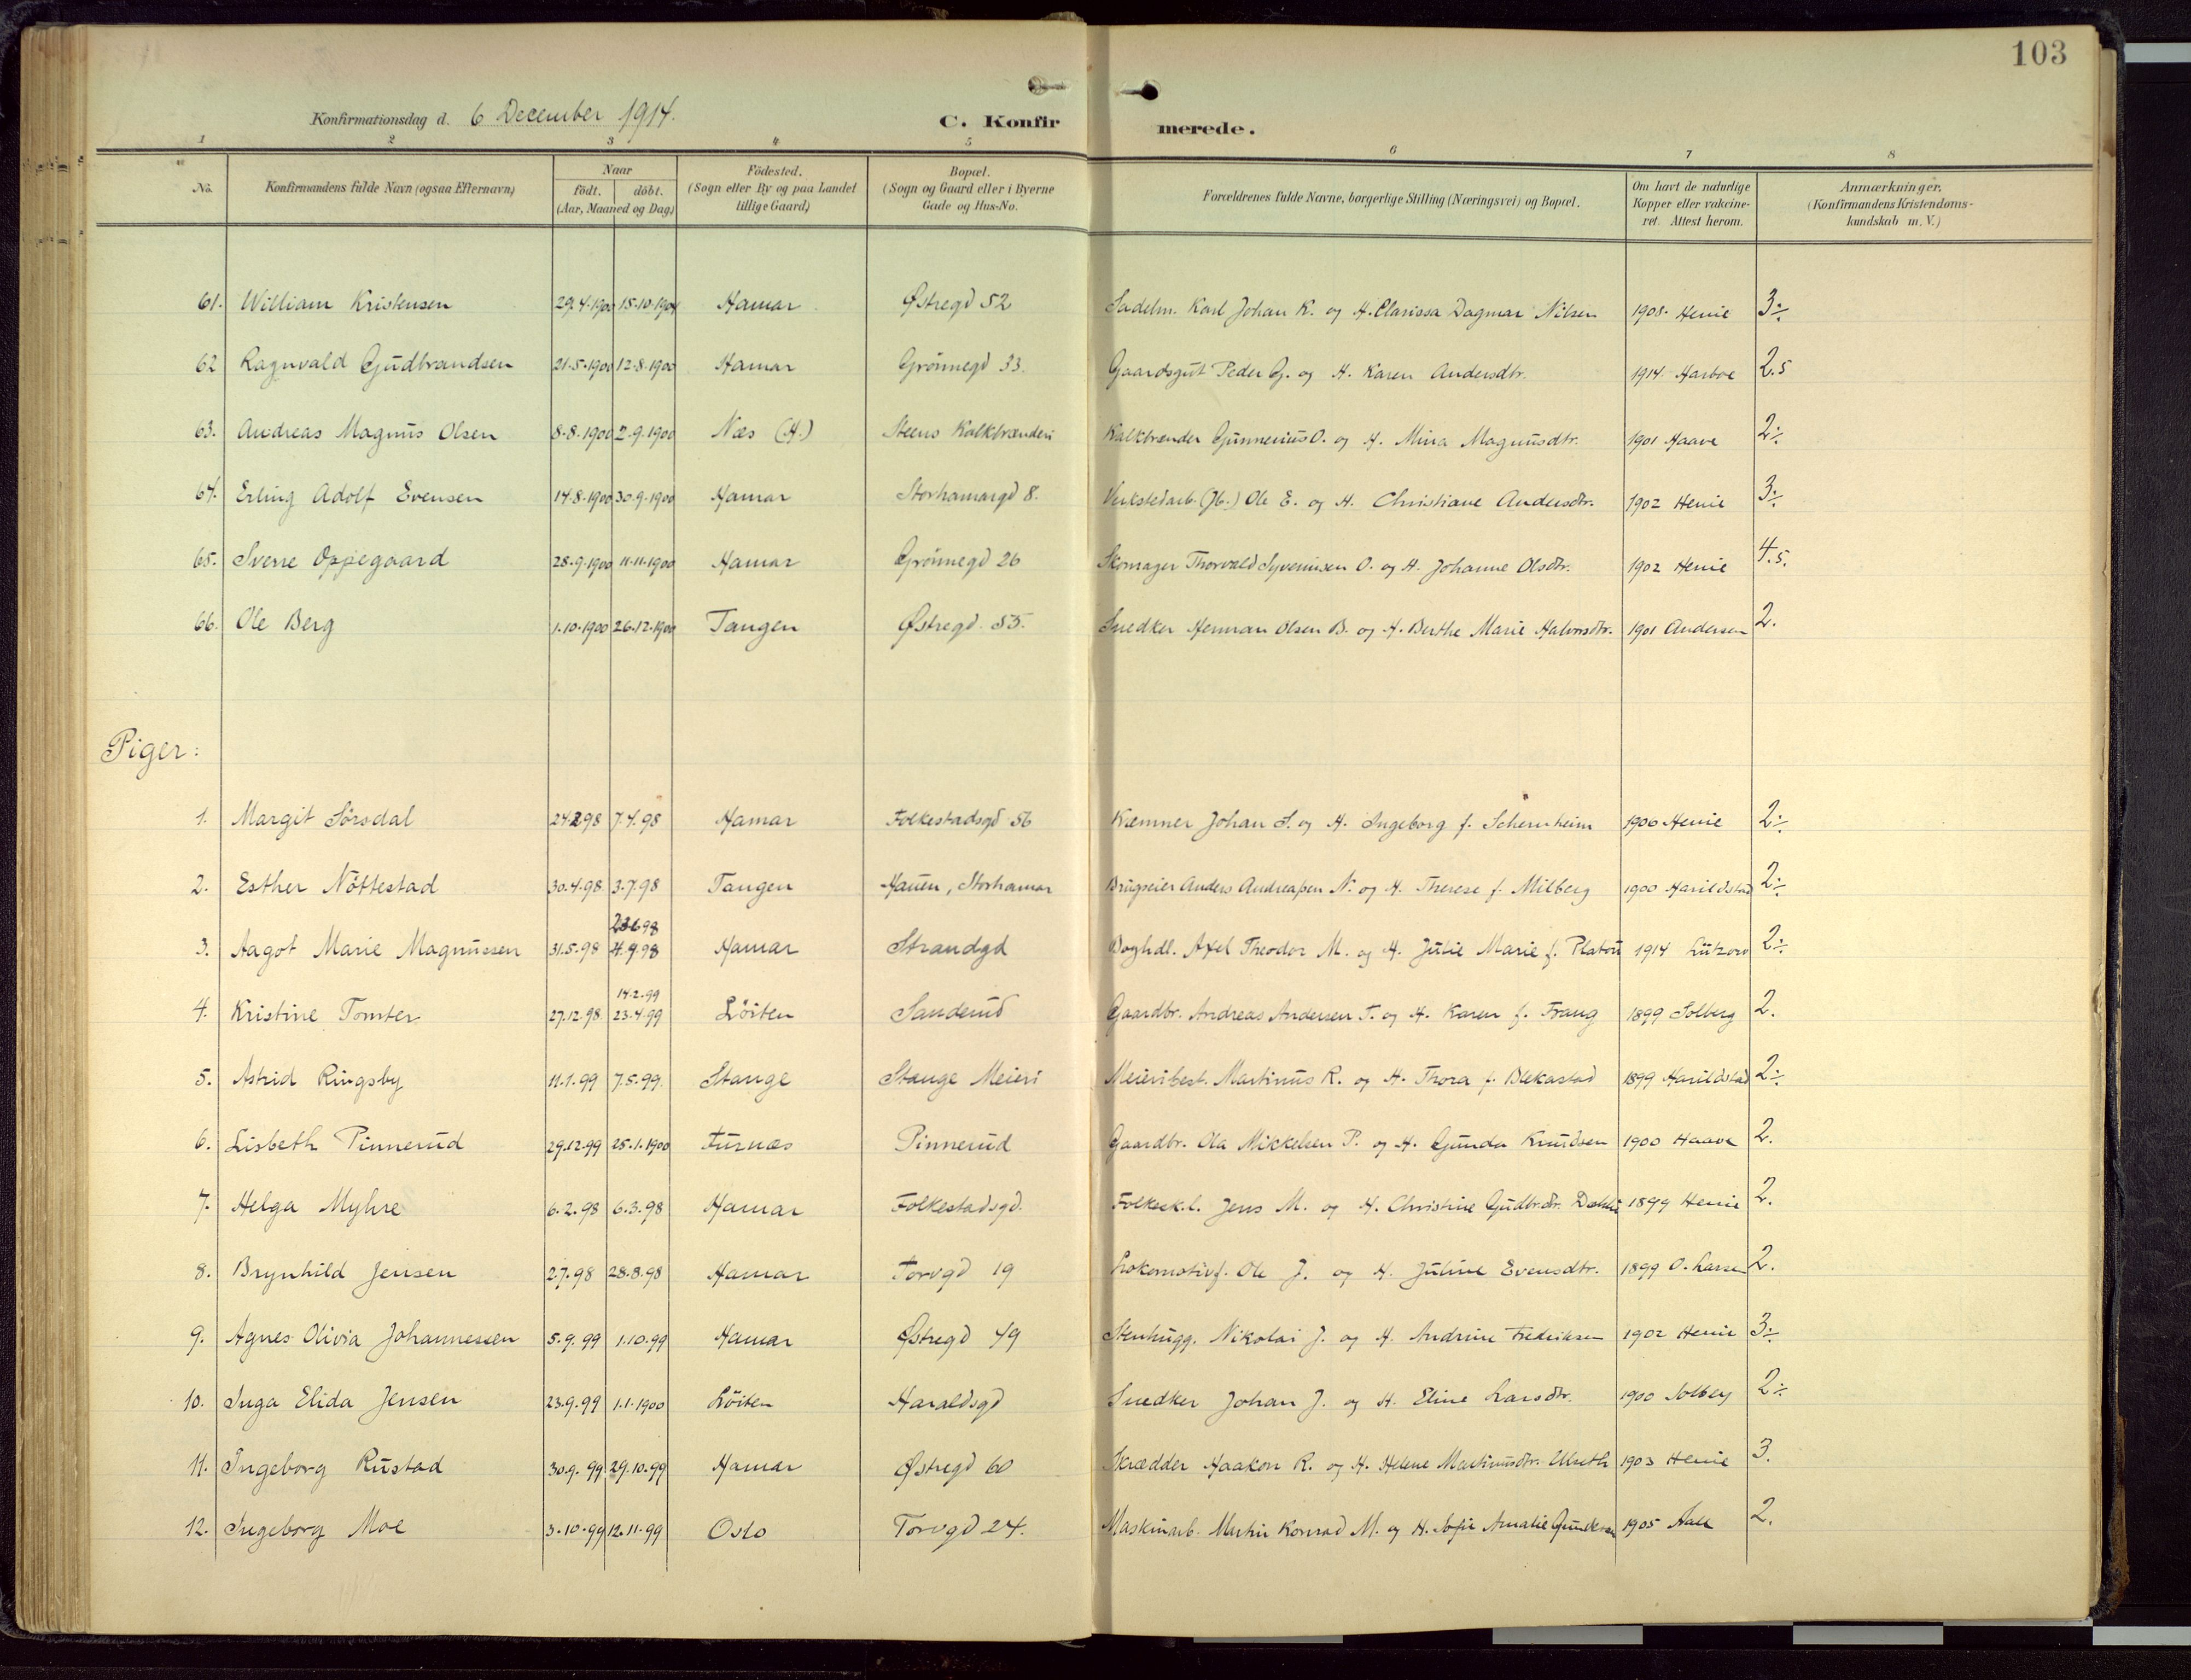 103
Konfirmationsdag d. 6 December 1914. C. Konfirmerede.
1 2 3 4 5 6 7 8
No. Konfirmandens fulde Navn (ogsaa Efternavn) Naar født. døbt. (Aar, Maaned og Dag) Födested. (Sogn eller By og paa Landet tillige Gaard) Bopæl. (Sogn og Gaard eller i Byerne Gade og Hus-No. Forældrenes fulde Navne, borgerlige Stilling (Næringsvei) og Bopæl. Om havt de naturlige Kopper eller vakcineret. Attest herom. Anmærkninger. (Konfirmandens Kristendomskundskab m. V.)
61. William Kristensen 29.4.1900 15.10.1904 Hamar Østregd 52 Sadelm. Karl Johan K. og H. Clarissa Dagmar Nilsen 1908. Henie 3÷
62 Ragnvald Gudbrandsen 21.5.1900 12.8.1900 Hamar Grönnegd 33. Gaardsgut Peder G. og H. Karen Andersdtr. 1914. Harboe 2.5
63. Andreas Magnus Olsen 8.8.1900 2.9.1900 Næs (H.) Steens Kalkbrænderi Kalkbrænder Gunnerius O. og H. Mina Magnusdtr. 1901 Haave 2÷
64. Erling Adolf Evensen 14.8.1900 30.9.1900 Hamar Storhamargd 8. Verkstedarb. (Jb.) Ole E. og H. Christiane Andersdtr. 1902 Henie 3÷
65. Sverre Oppegaard 28.9.1900 11.11.1900 Hamar Grönnegd 26 Skomager Thorvald Syverinsen O. og H. Johanne Olsdtr. 1902 Henie 4.5.
66. Ole Berg 1.10.1900 26.12.1900 Tangen Østregd. 55. Snedker Herman Olsen B. og H. Berthe Marie Halvorsdtr. 1901 Andersen 2.
Piger:
1. Margit Sörsdal 24.2.98 7.4.98 Hamar Folkestadsgd 56 Kæmner Johan S. og H. Ingeborg f. Schernheim 1906 Henie 2÷
2. Esther Nöttestad 30.4.98 3.7.98 Tangen Hauen, Storhamar Brugseier Anders Andreassen N. og H. Therese f. Milberg 1900 Harildstad 2÷
3. Aagot Marie Magnussen 31.5.98 4.9.98 Hamar Strandgd Boghdl. Axel Theodor M. og H. Julie Marie f. Platou 1914 Lützow 2÷
14.2.99
4. Kristine Tomter 27.12.98 23.4.99 Löiten Sanderud Gaardbr. Andreas Andersen T. og H. Karen f. Frang 1899 Solberg 2.
5. Astrid Ringsby 11.1.99 7.5.99. Stange Stange Meieri Meieribest. Martinus R. og H. Thora f. Blekastad 1899 Harildstad 2÷
6. Lisbeth Pinnerud 29.12.99 25.1.1900 Furnæs Pinnerud Gaardbr. Ola Mikkelsen P. og H. Gunda Knudsen 1900 Haave 2.
7. Helga Myhre 6.2.98 6.3.98 Hamar Folkestadsgd. Folkesk.l. Jens M. og H. Christine Gudbr.dtr. 1899 Henie 2.
8. Brynhild Jensen 2.7.98 28.8.98 Hamar Torvgd 19 Lokomotivf. Ole J. og H. Juline Evensdtr. 1899 O. Larsen 2.
9. Agnes Olivia Johannessen 5.9.99 1.10.99 Hamar Østregd 49 Stenhugg. Nikolai J. og H. Andrine Fredriksen 1902 Henie 3÷
10. Inga Elida Jensen 23.9.99 1.1.1900 Löiten Haraldsgd Snedker Johan J. og H. Eline Larsdtr. 1900 Solberg 2÷
11. Ingeborg Rustad 30.9.99 29.10.99 Hamar Østregd 60 Skrædder Haakon R. og H. Helene Martinusdtr. Ulseth 1903 Henie 3.
12. Ingeborg Moe 3.10.99 12.11.99 Oslo Torvgd 24. Maskinarb. Martin Konrad M. og H. Sofie Amalie Gundersen 1905 2.